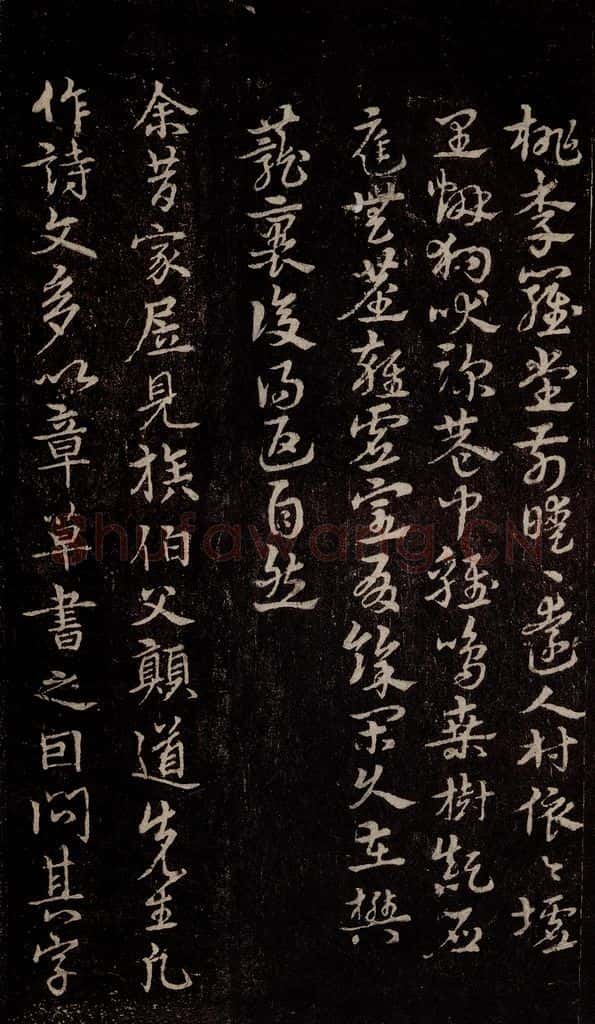 桃李羅堂前曖、遠人村依々墟
里烟狗吠深巷中雞鳴桑樹顛戶
庭無塵雜虛室有餘閑久在樊
籠裏復得返自然
余昔家居見族伯父顛道先生凡
作詩文多以章草書之因問其字
Shufawang.CN